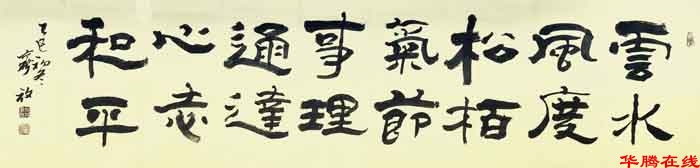 雲水
風度
松栢
氣節
事理
通達
心志
和平
乙巳初冬
华腾在线